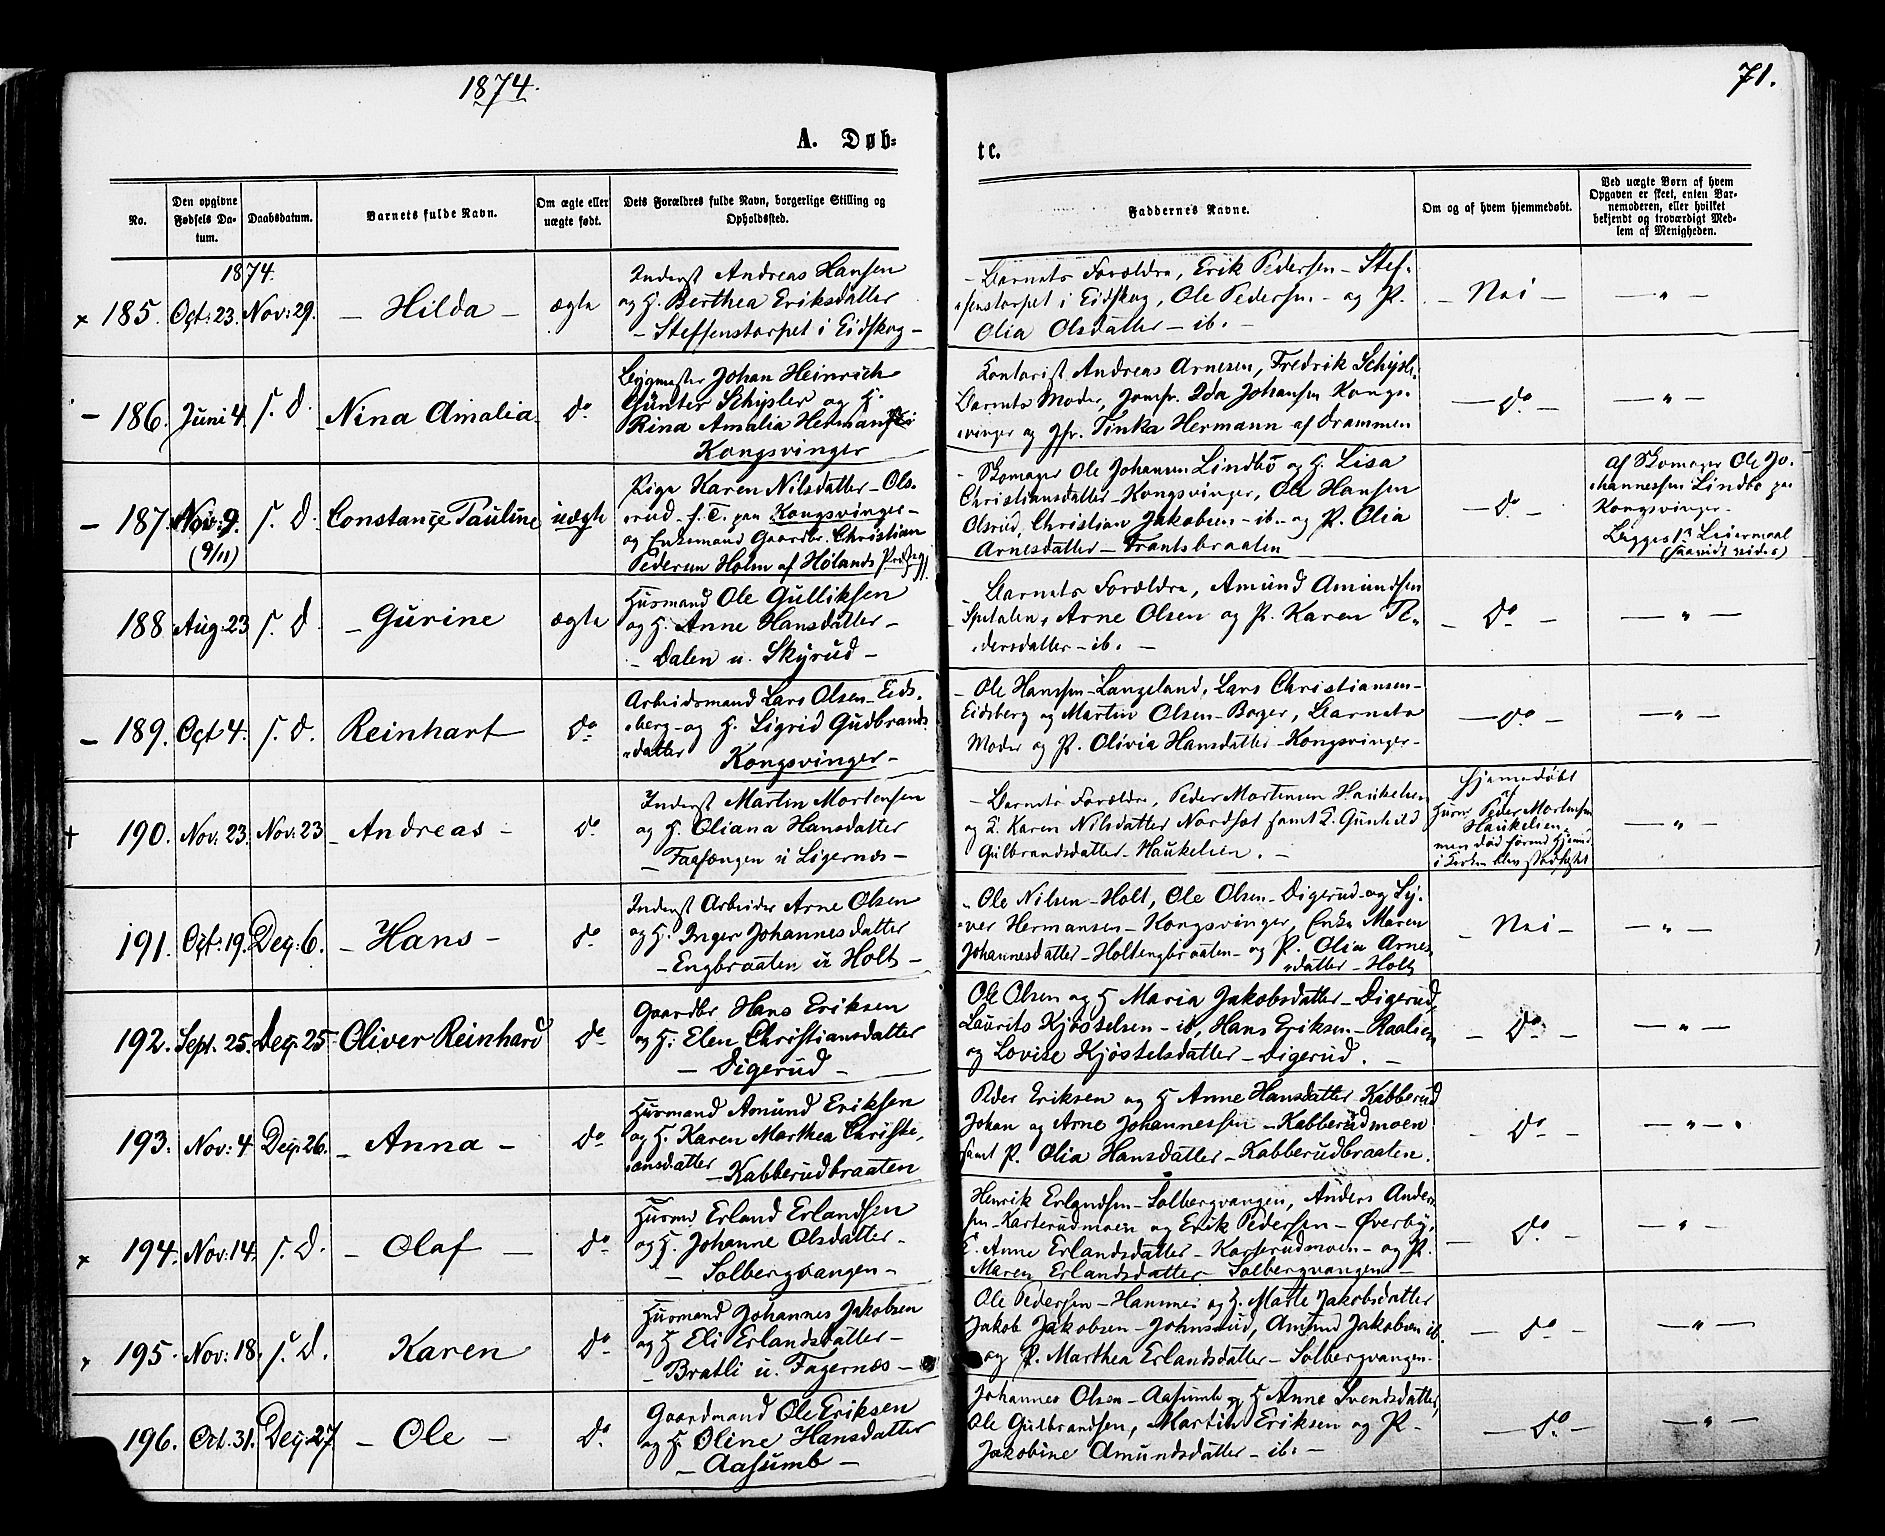 1874.
71.
A. Døb-
te.
No.
Den opgivne Fødsels Datum.
Daabsdatum.
Barnets fulde Navn.
Om ægte eller uægte født.
Dets Forældres fulde Navn, borgerlige Stilling og Opholdssted.
Faddernes Navne.
Om og af hvem hjemmedøbt.
Ved uægte Børn af hvem Opgaven er skeet, enten Barnemoderen, eller hvilket bekjendt og troværdigt Medlem af Menigheden.
1874.
× 185. Oct: 23. Nov: 29. – Hilda – ægte
Inderst Andreas Hansen
og H. Berthea Eriksdatter
– Steffenstorpet i Eidskog –
– Barnets Forældre, Erik Pedersen – Stef-
fenstorpet i Eidskog, Ole Pedersen – og P.
Olia Olsdatter – ib. –
– Nei –
– " –
– 186. Juni 4. s. D. Nina Amalia. do
Bygmester Johan Heinrich
Günter Schysler og H.
Rina Amalia Herman
Kongsvinger
Kontorist Andreas Arnesen, Fredrik Schysler
Barnets Moder, Jomfr. Ida Johansen Kongs-
vinger og Jfr. Tinka Hermann af Drammen
– do –
– " –
– 187. Nov: 9. s. D. Constance Pauline uægte
(9/11)
Pige Karen Nilsdatter – Ols-
rud – f. T. paa Kongsvinger –
og Enkemand Gaardbr. Christian
Pedersen Holm af Hølands Præsteg.
– Skomager Ole Johansen Lindbö og H. Lisa
Christiansdatter – Kongsvinger, Ole Hansen
Olsrud, Christian Jakobsen – ib. – og P. Olia
Arnesdatter – Frantsbraaten
– do –
af Skomager Ole Jo-
hannessen Lindbö paa
Kongsvinger –
Begges 1ste Leiermaal
(saavidt vides)
188 Aug: 23 s. D. – Gurine ægte
Husmand Ole Gulliksen
og H. Anne Hansdatter –
– Dalen u. Skyrud –
– Barnets Forældre, Amund Amundsen
Spetalen, Arne Olsen og P. Karen Pe-
dersdatter – ib. –
– do –
– " –
– 189. Oct 4. s. D. Reinhart do
Arbeidsmand Lars Olsen – Eids-
berg – og H. Sigrid Gudbrands-
datter Kongsvinger –
– Ole Hanssen – Langeland, Lars Christiansen –
Eidsberg og Martin Olsen – Borger, Barnets
Moder og P. Olivia Hansdatter – Kongsvinger –
– do –
– " –
† 190. Nov: 23. Nov: 23 – Andreas – do
Inderst Martin Mortensen
og H. Oliana Hansdatter
– Faasengen u Ligernæs –
– Barnets Forældre, Peder Mortensen Haukelien
og E. Karen Nilsdatter Nordsat samt E. Gunhild
Gulbrandsdatter – Haukelien. –
Hjemmedøbt
af
Husm: Peder Mortensen
Haukelien –
men død førend Hjemmed.
i Kirken blev stadfæstet
– " –
191. Oct: 19. Dec: 6. – Hans – do
Inderst Arbeider Arne Olsen
og H. Inger Johannesdatter
– Engbraaten u Holt –
Ole Nilsen – Holt, Ole Olsen – Digerud – og Sy-
ver Hermansen – Kongsvinger, Enke Maren
Johannesdatter – Holtengbraaten – og P. Olia Arnes-
datter – Holt
– Nei –
– " –
192. Sept. 25. Dec: 25 Oliver Reinhard do
Gaardbr Hans Eriksen
og H. Elen Christiansdatter
– Digerud –
Ole Olsen og H Maria Jakobsdatter – Digerud,
Laurits Kjöstelsen – ib, Hans Eriksen – Raalien
og Lovise Kjöstelsdatter – Digerud. –
– do –
– " –
193. Nov: 4 Dec: 26. – Anna – do
Husmand Amund Eriksen
og H. Karen Marthea Christi-
ansdatter – Kabberudbraaten
Peder Eriksen og H Anne Hansdatter Kabberud
Johan og Arne Johannessen – Kabberudmoen
samt P. Olia Hansdatter – Kabberudbraaten.
– do –
– " –
× 194. Nov: 14. s. D. – Olaf – do
Husmd Erland Erlandsen
og H. Johanne Olsdatter –
– Solbergvangen –
Henrik Erlandsen – Solbergvangen, Anders Ander-
sen – Karterudmoen og Erik Pedersen – Øverby,
E. Anne Erlandsdatter – Karterudmoen – og P.
Maren Erlandsdatter Solbergvangen –
– do –
– " –
× 195. Nov: 18. s. D. Karen do
Husmand Johannes Jakobsen
og H Eli Erlandsdatter –
– Bratli u. Fagernæs –
Ole Pedersen – Hammer og H. Marte Jakobsdatter
Jakob Jakobsen – Johnsrud, Amund Jakobsen ib.
og P. Marthea Erlandsdatter – Solbergvangen –
– do –
– " –
196. Oct. 31. Dec: 27 – Ole – do
Gaardmand Ole Eriksen
og H. Oline Hansdatter
– Aasumb –
Johannes Olsen – Aasumb og H Anne Svendsdatter,
Ole Gulbrandsen, Martin Eriksen og P.
Jakobine Amundsdatter – ib. –
– do –
– " –